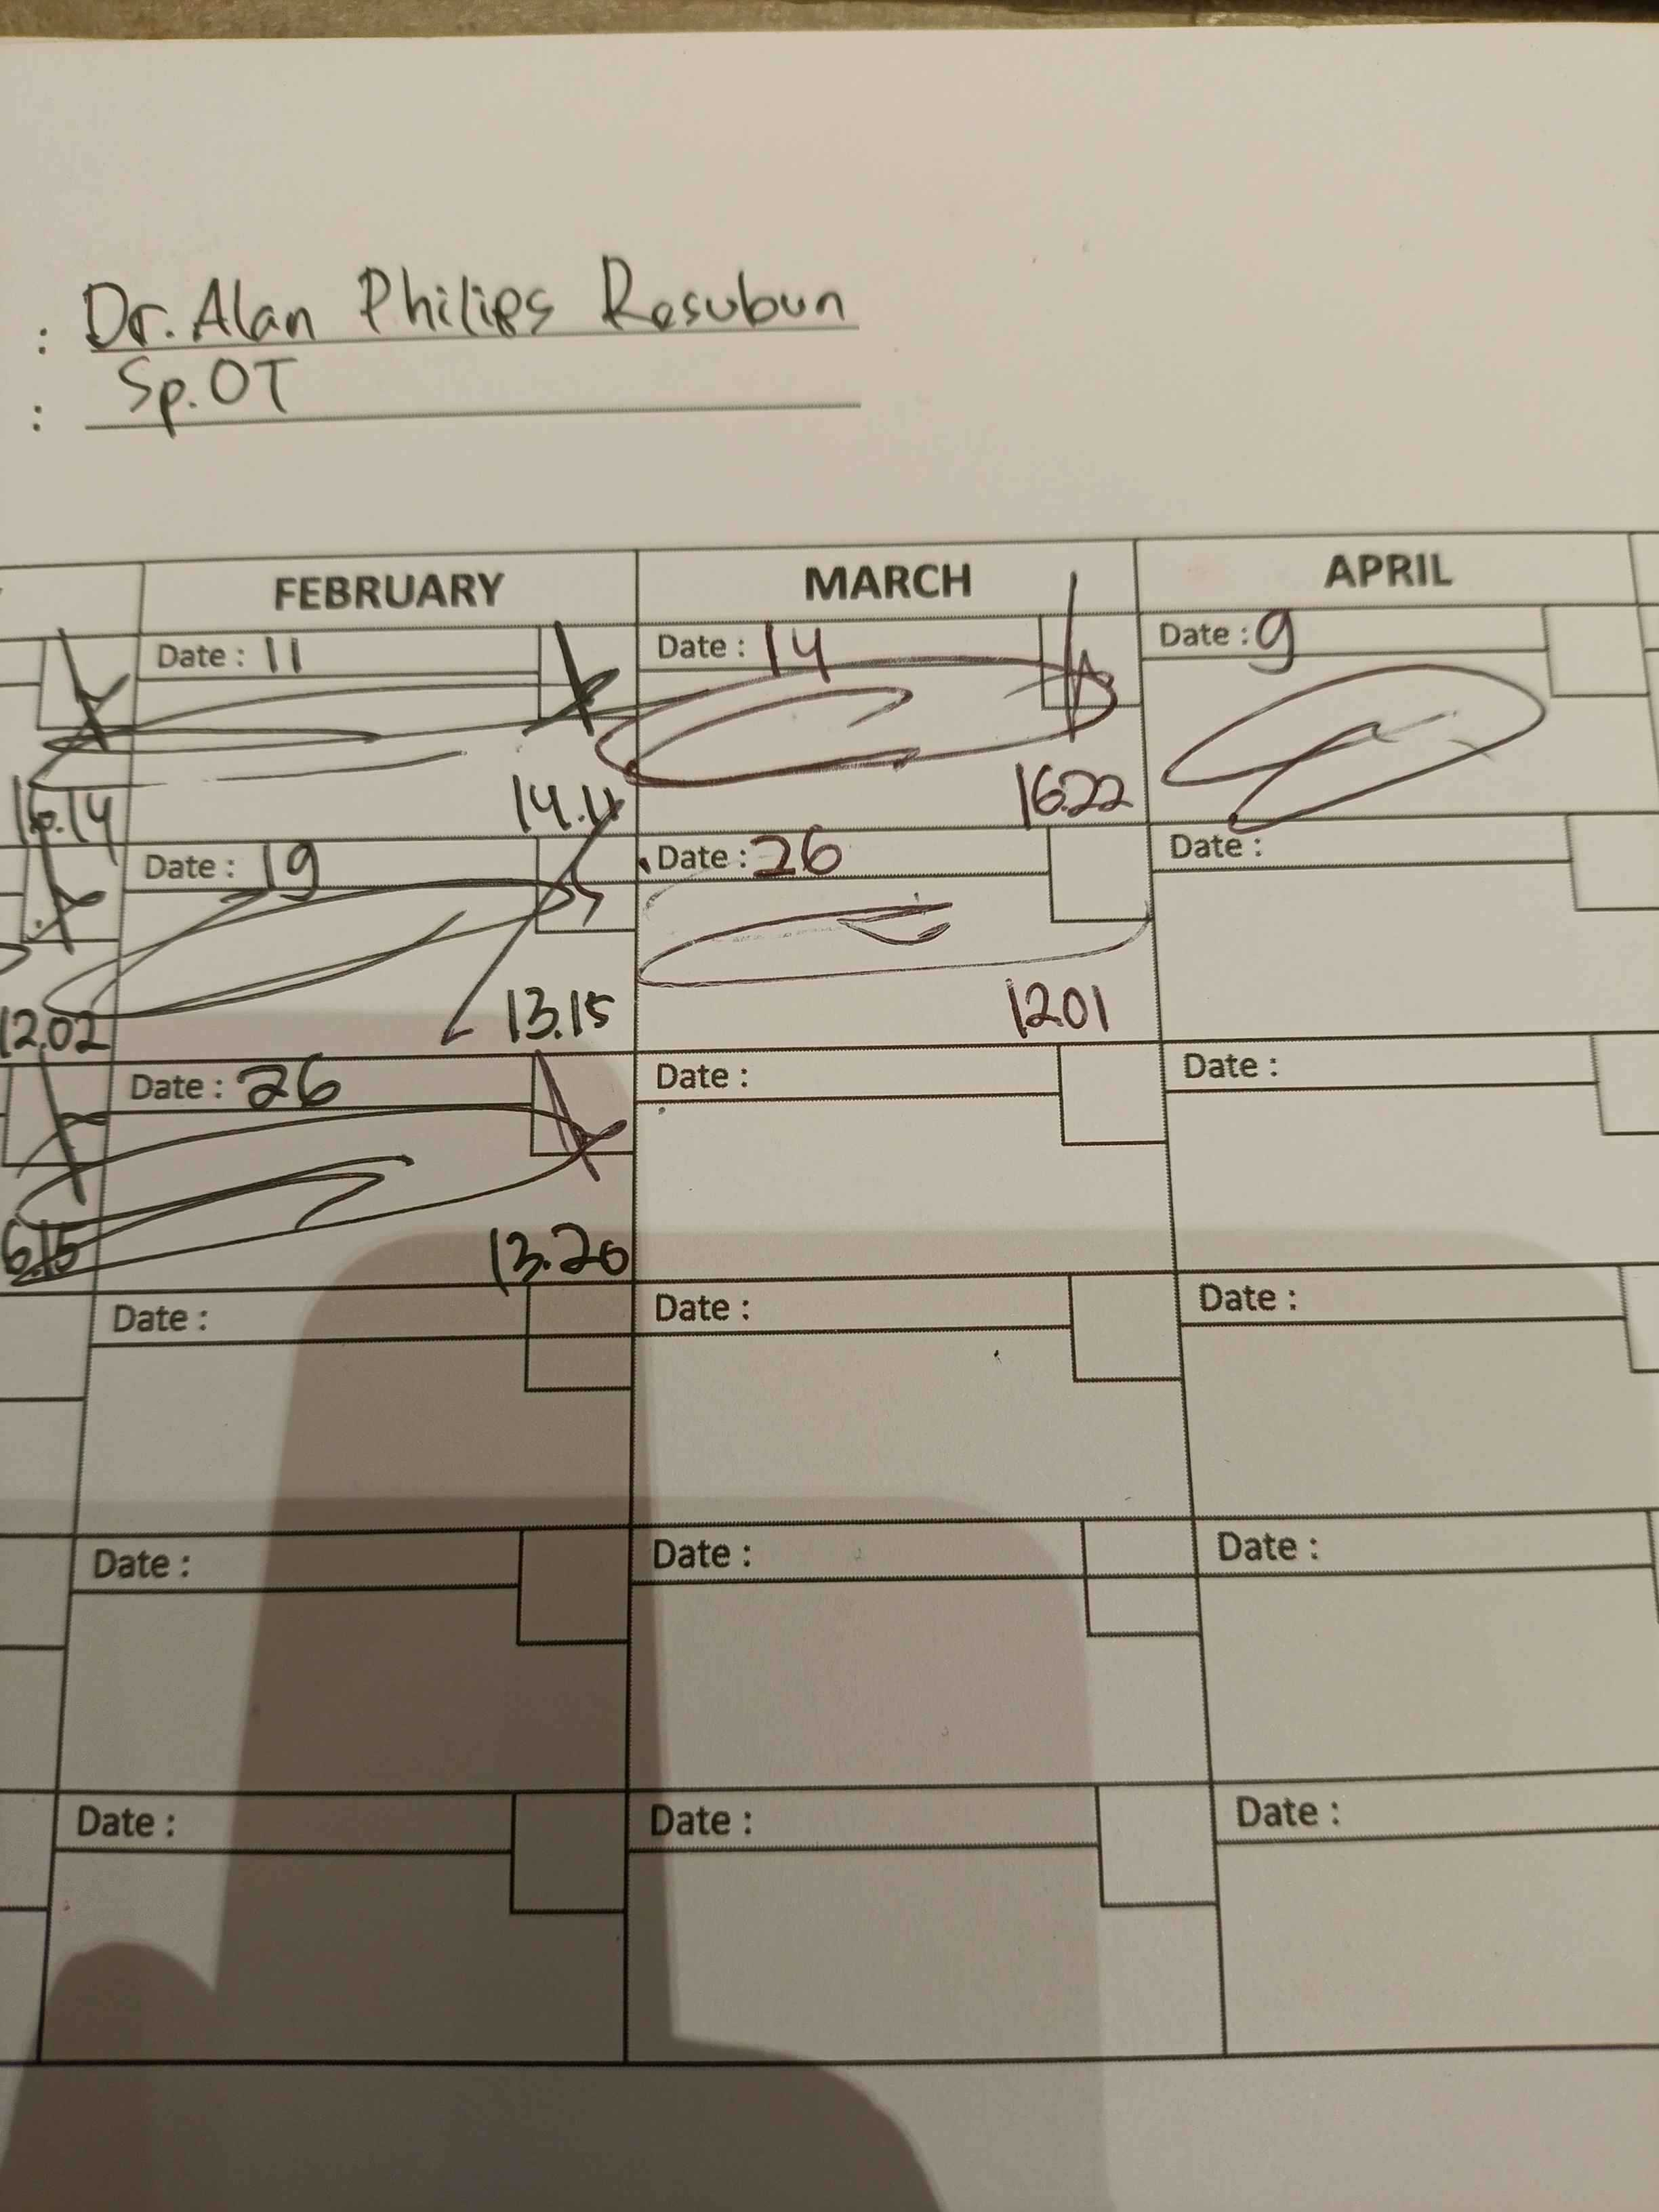 : Dr. Alan Philips Resubun
: Sp.OT
FEBRUARY MARCH APRIL
Date : 11 Date : 14 Date : 9
16.14 14.11 16.22
Date : 19 Date : 26 Date :
12.02 13.15 1201
Date : 26 Date : Date :
13.20
Date : Date : Date :
Date : Date : Date :
Date : Date : Date :